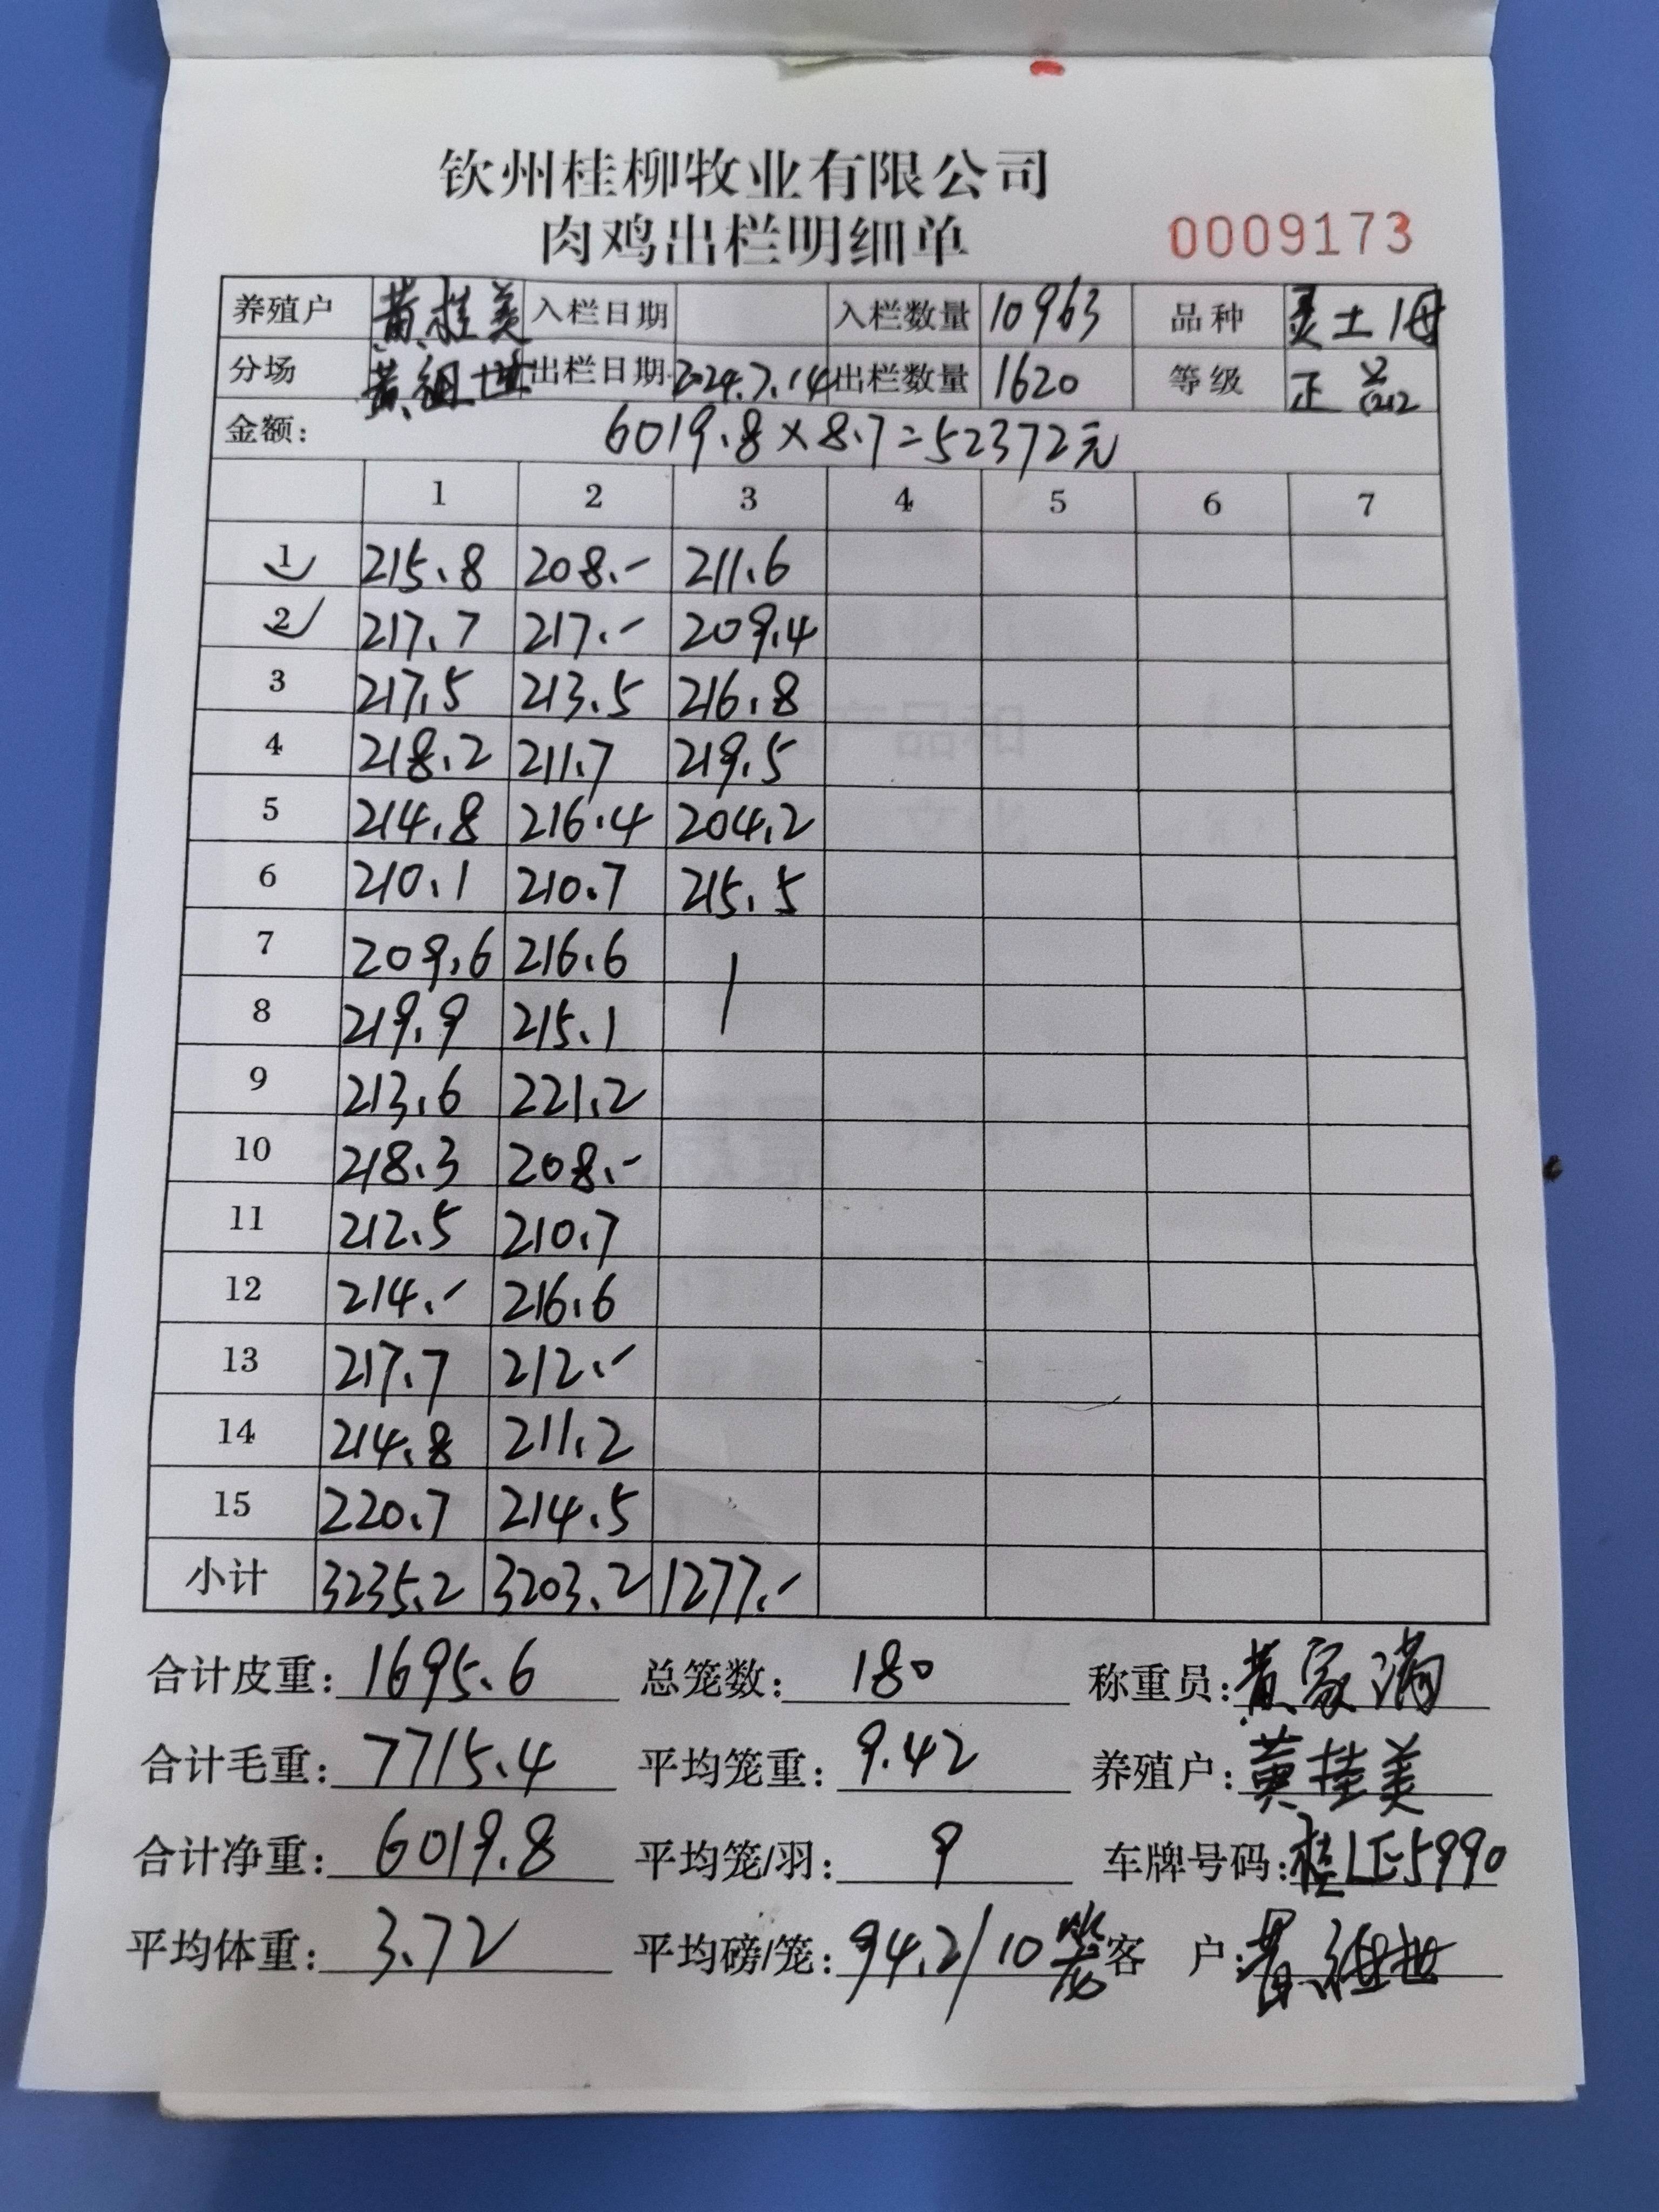 钦州桂柳牧业有限公司
肉鸡出栏明细单 0009173
养殖户 黄桂美 入栏日期 入栏数量 10963 品种 灵土1母
分场 黄祖世 出栏日期 2024.7.14 出栏数量 1620 等级 正品
金额: 6019.8×8.7=52372元
1 2 3 4 5 6 7
1 215.8 208.- 211.6
2 217.7 217.- 209.4
3 217.5 213.5 216.8
4 218.2 211.7 219.5
5 214.8 216.4 204.2
6 210.1 210.7 215.5
7 209.6 216.6
8 219.9 215.1
9 213.6 221.2
10 218.3 208.-
11 212.5 210.7
12 214.- 216.6
13 217.7 212.-
14 214.8 211.2
15 220.7 214.5
小计 3235.2 3203.2 1277.-
合计皮重: 1695.6 总笼数: 180 称重员: 黄家满
合计毛重: 7715.4 平均笼重: 9.42 养殖户: 黄桂美
合计净重: 6019.8 平均笼/羽: 9 车牌号码: 桂LE5990
平均体重: 3.72 平均磅/笼: 94.2/10笼 客 户: